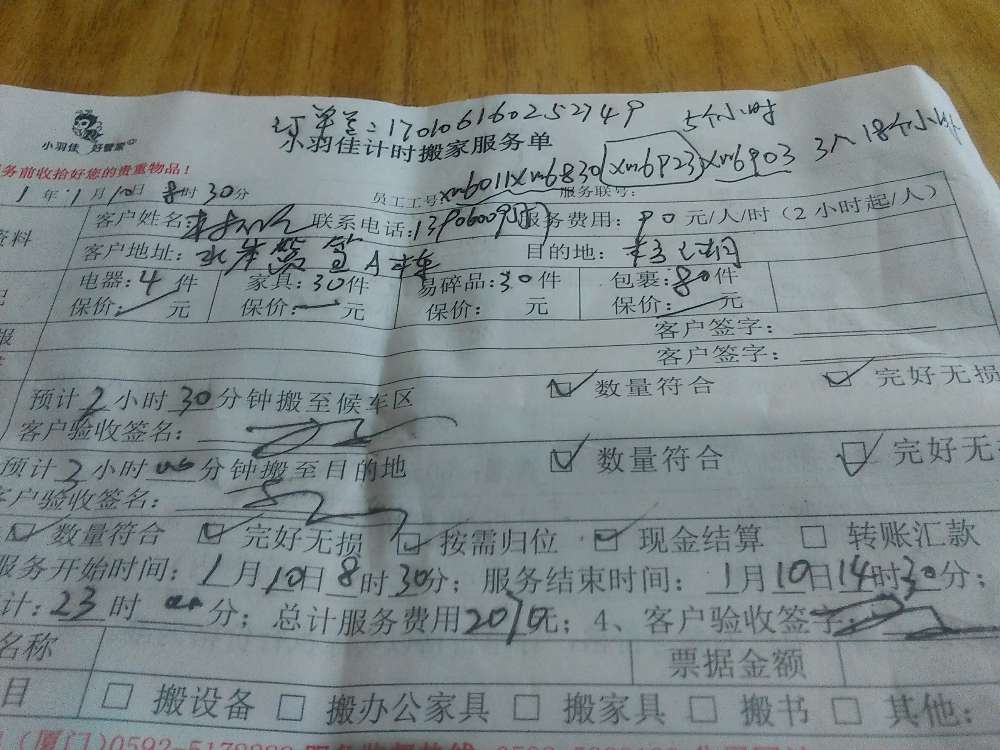 订单号: 17010616025274​9 5个小时
小羽佳 好管家 小羽佳计时搬家服务单 3人18个小时
务前收拾好您的贵重物品!
1年1月10日8时30分 员工工号xm6011xm6830(xm6923)xm6903 服务联号:
资料 客户姓名: 联系电话: 服务费用:90元/人/时(2小时起/人)
客户地址:水岸 A 目的地:
电器:4件 家具:30件 易碎品:30件 包裹:80件
保价: 元 保价: 元 保价: 元 保价: 元
客户签字:
客户签字:
预计2小时30分钟搬至候车区 数量符合 完好无损
客户验收签名:
预计2小时00分钟搬至目的地 数量符合 完好无
客户验收签名:
数量符合 完好无损 按需归位 现金结算 转账汇款
服务开始时间:1月10日8时30分; 服务结束时间:1月10日14时30分;
计:23时00分; 总计服务费用2070元; 4、客户验收签字:
名称 票据金额
目 搬设备 搬办公家具 搬家具 搬书 其他: